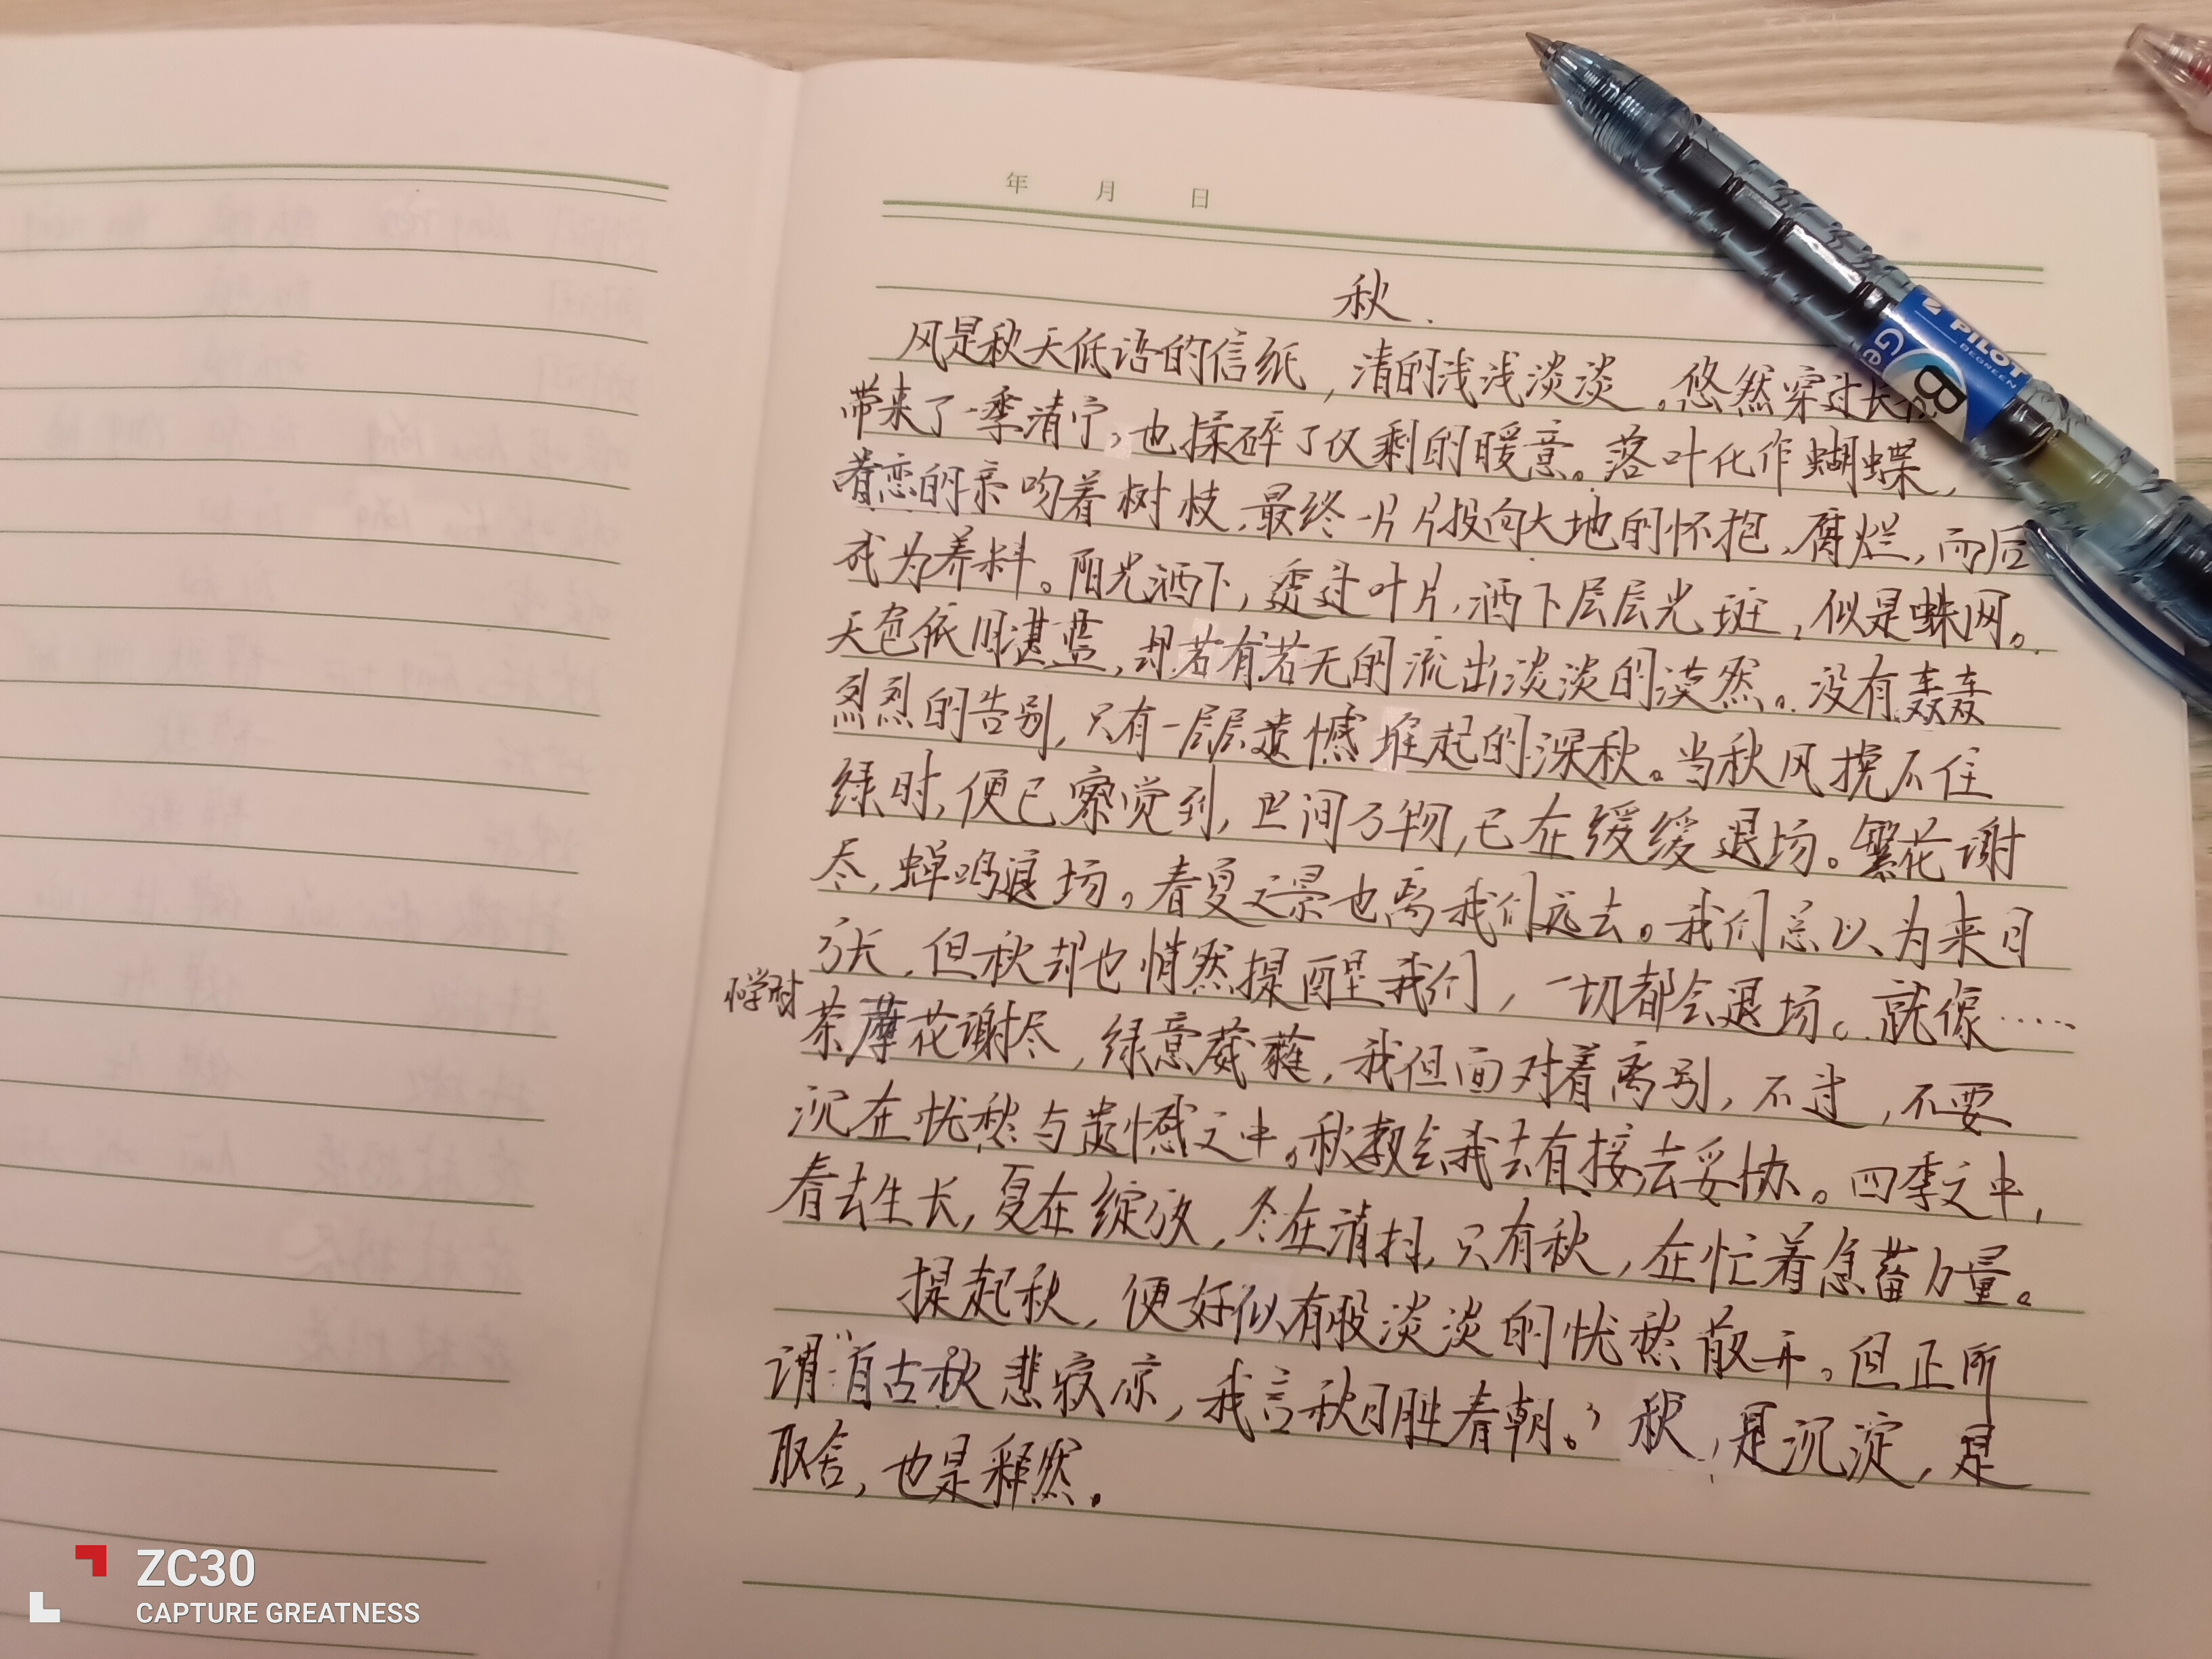 年 月 日
秋.
风是秋天低语的信纸，清的浅浅淡淡。悠然穿过长
带来了一季清宁，也揉碎了仅剩的暖意。落叶化作蝴蝶，
眷恋的亲吻着树枝，最终一片片投向大地的怀抱，腐烂，而后
成为养料。阳光洒下，透过叶片，洒下层层光斑，似是蛛网。
天色依旧湛蓝，却若有若无的流出淡淡的漠然。没有轰轰
烈烈的告别，只有一层层遗憾堆起的深秋。当秋风挽不住
绿时，便已察觉到，世间万物，已在缓缓退场。繁花谢
尽，蝉鸣退场。春夏之景也离我们远去。我们总以为来日
方长，但秋却也悄然提醒我们，一切都会退场。就像……
小学时
荼蘼花谢尽，绿意葳蕤，我但面对着离别，不过，不要
沉在忧愁与遗憾之中。秋教会我去直接去妥协。四季之中，
春去生长，夏在绽放，冬在清扫，只有秋，在忙着急蓄力量。
提起秋，便好似有股淡淡的忧愁散开。但正所
谓“自古秋悲寂凉，我言秋日胜春朝。”秋，是沉淀，是
取舍，也是释然。
PILOT
BEGREEN
B
Ge
ZC30
CAPTURE GREATNESS